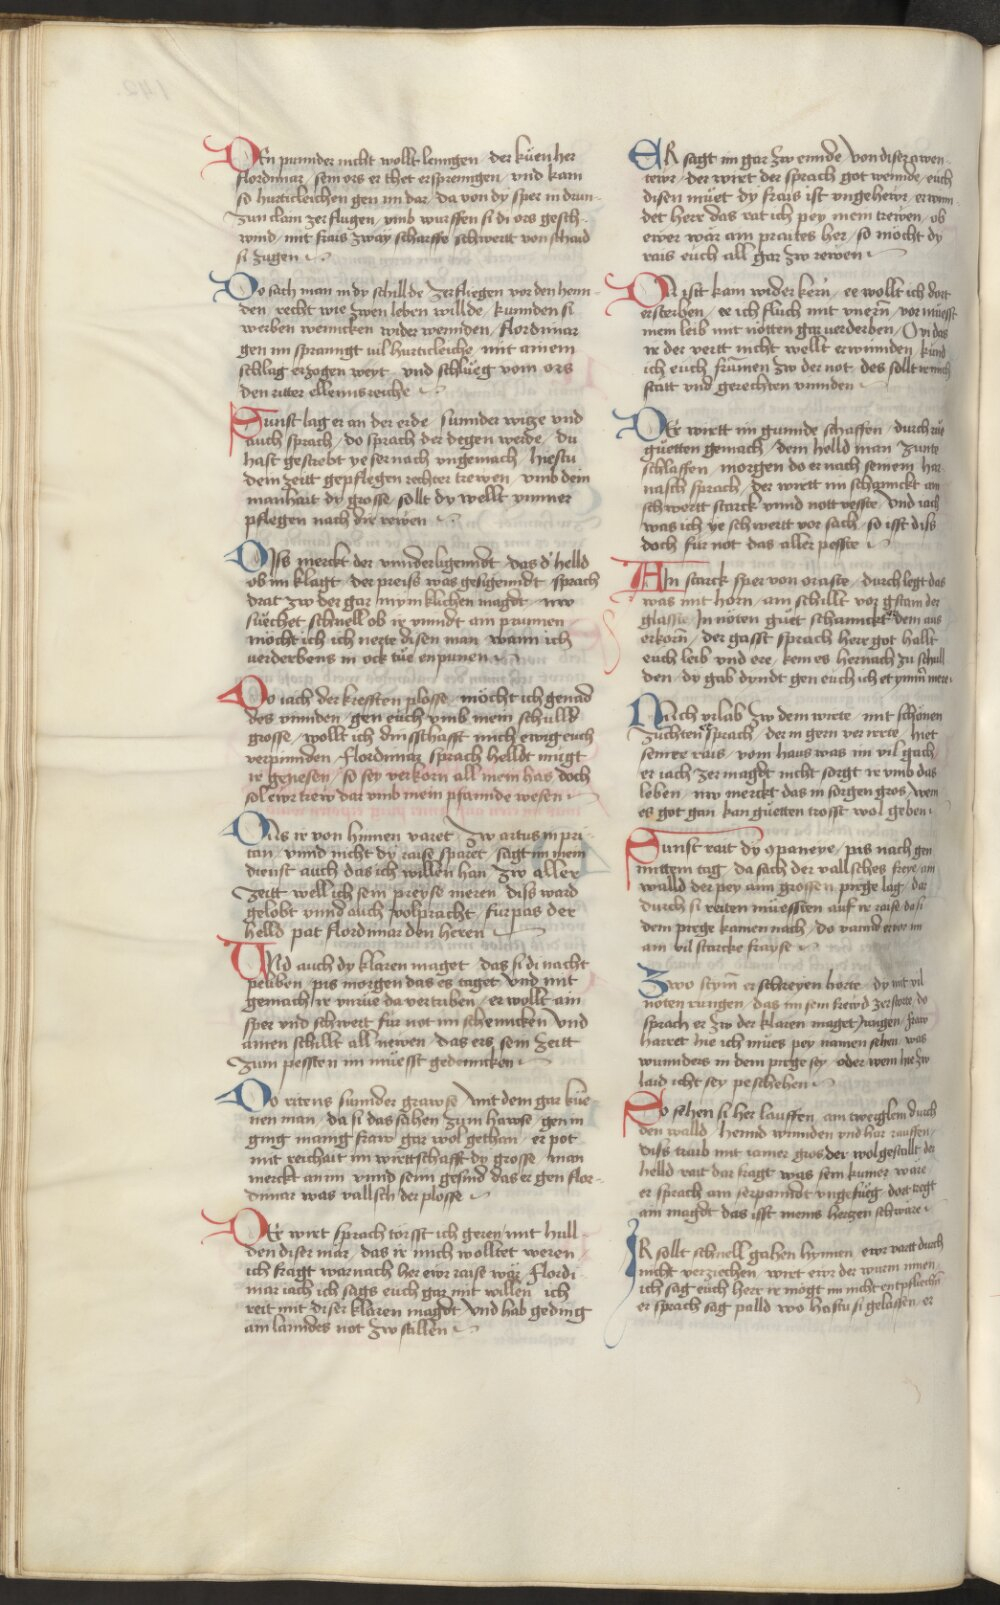 Den punnder nicht wollt lenngen / der küen her
flordimar / sein ors er thet ersprenngen / vnd kam
so hurtickleichen gen im dar / da von dy sper in drun-
zun clain zerflugen / vmb wurffen si di ors gesch-
wind / mit frais zway scharffe schwertt von schaid
si zugen
Do sach man in dy schillde zerfliegen vor den henn-
den / recht wie zwen leben willde / kunnden si
werben wenncken wider wennden / flordimar
gen im spranngt vil hurtickleiche / mit ainem
schlag erzogen weyt / vnd schlueg vom ors
den ritter ellennsreiche
Sunst lag er an der erde / sunnder wize vnd
auch sprach / do sprach der degen werde / du
hast gestrebt ye ser nach vngemach / hiestu
dein zeitt gepflegen rechter trewen / vmb dein
manhait dy grosse / sollt dy wellt ymmer
pflegen nach dir rewen
Diss merckt der vnnderligenndt / das d' helld
ob im klagt / der preiss was gesigenndt / sprach
drat zw der gar mynnklichen magdt / nw
suechet schnell ob ir vindt ain prunnen
möcht ich ich nerte disen man / wann ich
verderbens in ock tue enpunen
Do iach der kressten plosse / möcht ich genad
des vinnden / gen euch vmb mein schulld
grosse / wollt ich dinstschafft mich ewig euch
verpinnden / flordimar sprach helldt mügt
ir genesen / so sey verkorn all mein has / doch
sol ewr trew dar vmb mein pfannde wesen
Als ir von hinnen varet / zw artus in pri-
tan / vnnd nicht dy raise sparet / sagt im mein
dienst auch das ich willen han / zw aller
zeitt well ich sein preyse meren / diss ward
gelobt vnnd auch volpracht / furpas der
helld pat flordimar den heren
Und auch dy klaren maget / das si di nacht
peliben / pis morgen das es taget / vnd mit
gemach ir vnrue da vertriben / er wollt ain
sper vnd schwert für not im schenncken / vnd
ainen schillt all newen / das ers sein zeitt
zum pessten im müesst gedenncken
Do ritens sunnder grawse / mit dem gar küe-
nen man / da si das sahen zum hawse / gen in
ging manig fraw gar wol gethan / er pot
mit reichait im wirttschafft dy grosse / man
merckt an im vnnd seim gesind das er gen flor-
dimar was vallsch der plosse
Der wirt sprach törsst ich geren / mit hull-
den diser mär / das ir mich wolltet weren
ich fragt warnach her ewr raise wär / flordi-
mar iach ich sags euch gar mit willen / ich
reit mit diser klaren magdt / vnd hab geding
ain lanndes not zw stillen
Er sagt im gar zw ennde / von diser awen-
tewr / der wirt der sprach got wennde / euch
disen müet dy frais ist vngehewr / erwinn-
det herr das rat ich pey mein trewen / ob
ewer wär ain praites her / so möcht dy
rais euch all gar zw rewen
Da isst kain wider kern / ee wollt ich dort
ersterben / ee ich fluch mit vnern / vor müesst
mein leib mit nötten gar verderben / Ovi das
ir der vertt nicht wellt erwinnden / kund
ich euch frumen zw der not / des sollt ir mich
statt vnd gerechten vinnden
Der wirtt im gunnde schaffen / durch rue
guetten gemach / dem helld man zunte
schlaffen / morgen do er nach seinem har-
nasch sprach / der wirtt im schannckt ain
schwertt starck vnnd nott vesste / vnd iach
was ich ye schwertt vor sach / so isst diss
doch für not das aller pesste
Ain starck sper von oraste / durch legt das
was mit horn / ain schillt vor gstain der
glasste / In nöten guet schannckt er dem aus
erkorn / der gasst sprach herr got hallt
euch leib vnd ere / kem es hernach zu schul
den / dy gab dyndt gen euch ich et ymmer mere
Nach vrlab zw dem wirte / mit schönen
züchten er sprach / der in gern ver irrte / hiet
seiner rais / vom haus was im vil gach
er iach zer magdt nicht sorgt ir vmb das
leben / nw merckt das in sorgen gros / wem
es got gan kan guetten trosst wol geben
Sunst rait dy opaneye / pis nach gen
mittem tag / da sach der vallsches freye / ain
walld der pey aim grossen pirge lag / dar
durch si reiten müessten auf ir raise / da si
dem pirge kamen nach / do vannd er vor im
ain vil starcke frayse
Zwo stym er schreyen horte / dy mit vil
noten rungen / das im sein frewd zerstorte / do
sprach er zw der klaren maget jungen / fraw
harret hie ich mues pey namen sehen / was
wunnders in dem pirge sey / oder wem hie zw
laid icht sey peschehen
Do sehen si her lauffen / ain twerglein durch
den walld / hennd winnden vnd har rauffen /
diss traib mit iamer gros der wolgestallt der
helld rait dar fragt was sein kumer wäre
er sprach ain serpanndt vngefüeg / dort tregt
ain magdt das isst meins herzen schwäre
Ir sollt schnell gahen hynnen / ewr vartt durch
nicht verziechen / wirt ewr der wurm innen
ich sag euch herr ir mögt im nicht entpfliechn
er sprach sag palld wo hastu si gelassen / er